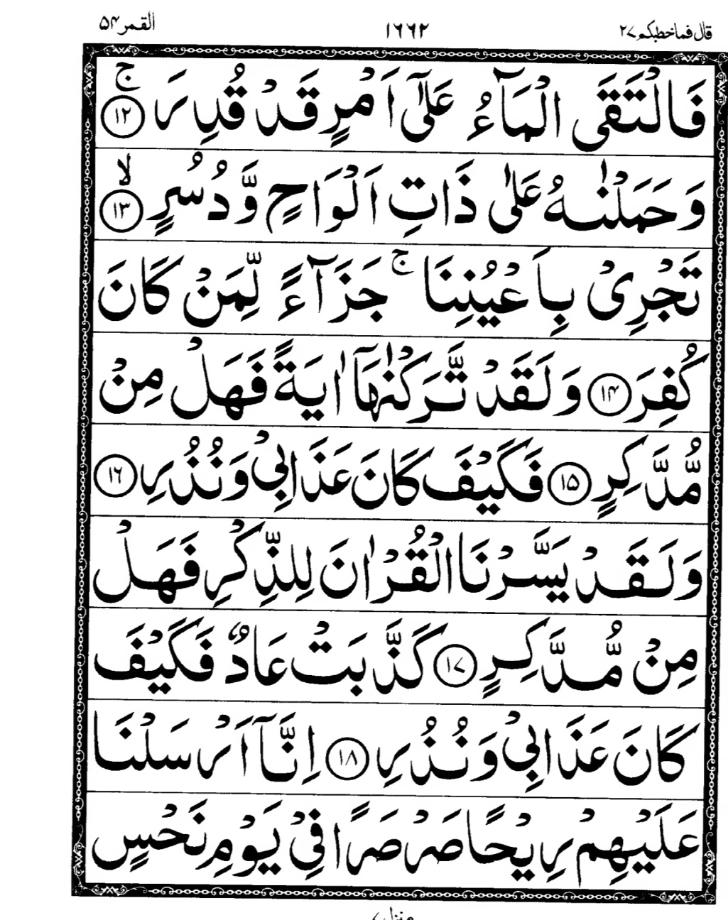 قال فما خطبكم ٢٧ ١٦٦٢ القمر ٥٤
فَالْتَقَى الْمَآءُ عَلٰٓى اَمْرٍ قَدْ قُدِرَ ۚ ﴿١٢﴾
وَحَمَلْنٰهُ عَلٰى ذَاتِ اَلْوَاحٍ وَّدُسُرٍ ۙ ﴿١٣﴾
تَجْرِىْ بِاَعْيُنِنَا ۚ جَزَآءً لِّمَنْ كَانَ
كُفِرَ ﴿١٤﴾ وَلَقَدْ تَّرَكْنٰهَاۤ اٰيَةً فَهَلْ مِنْ
مُّدَّكِرٍ ﴿١٥﴾ فَكَيْفَ كَانَ عَذَابِىْ وَنُذُرِ ﴿١٦﴾
وَلَقَدْ يَسَّرْنَا الْقُرْاٰنَ لِلذِّكْرِ فَهَلْ
مِنْ مُّدَّكِرٍ ﴿١٧﴾ كَذَّبَتْ عَادٌ فَكَيْفَ
كَانَ عَذَابِىْ وَنُذُرِ ﴿١٨﴾ اِنَّاۤ اَرْسَلْنَا
عَلَيْهِمْ رِيْحًا صَرْصَرًا فِىْ يَوْمِ نَحْسٍ
منزل ٧